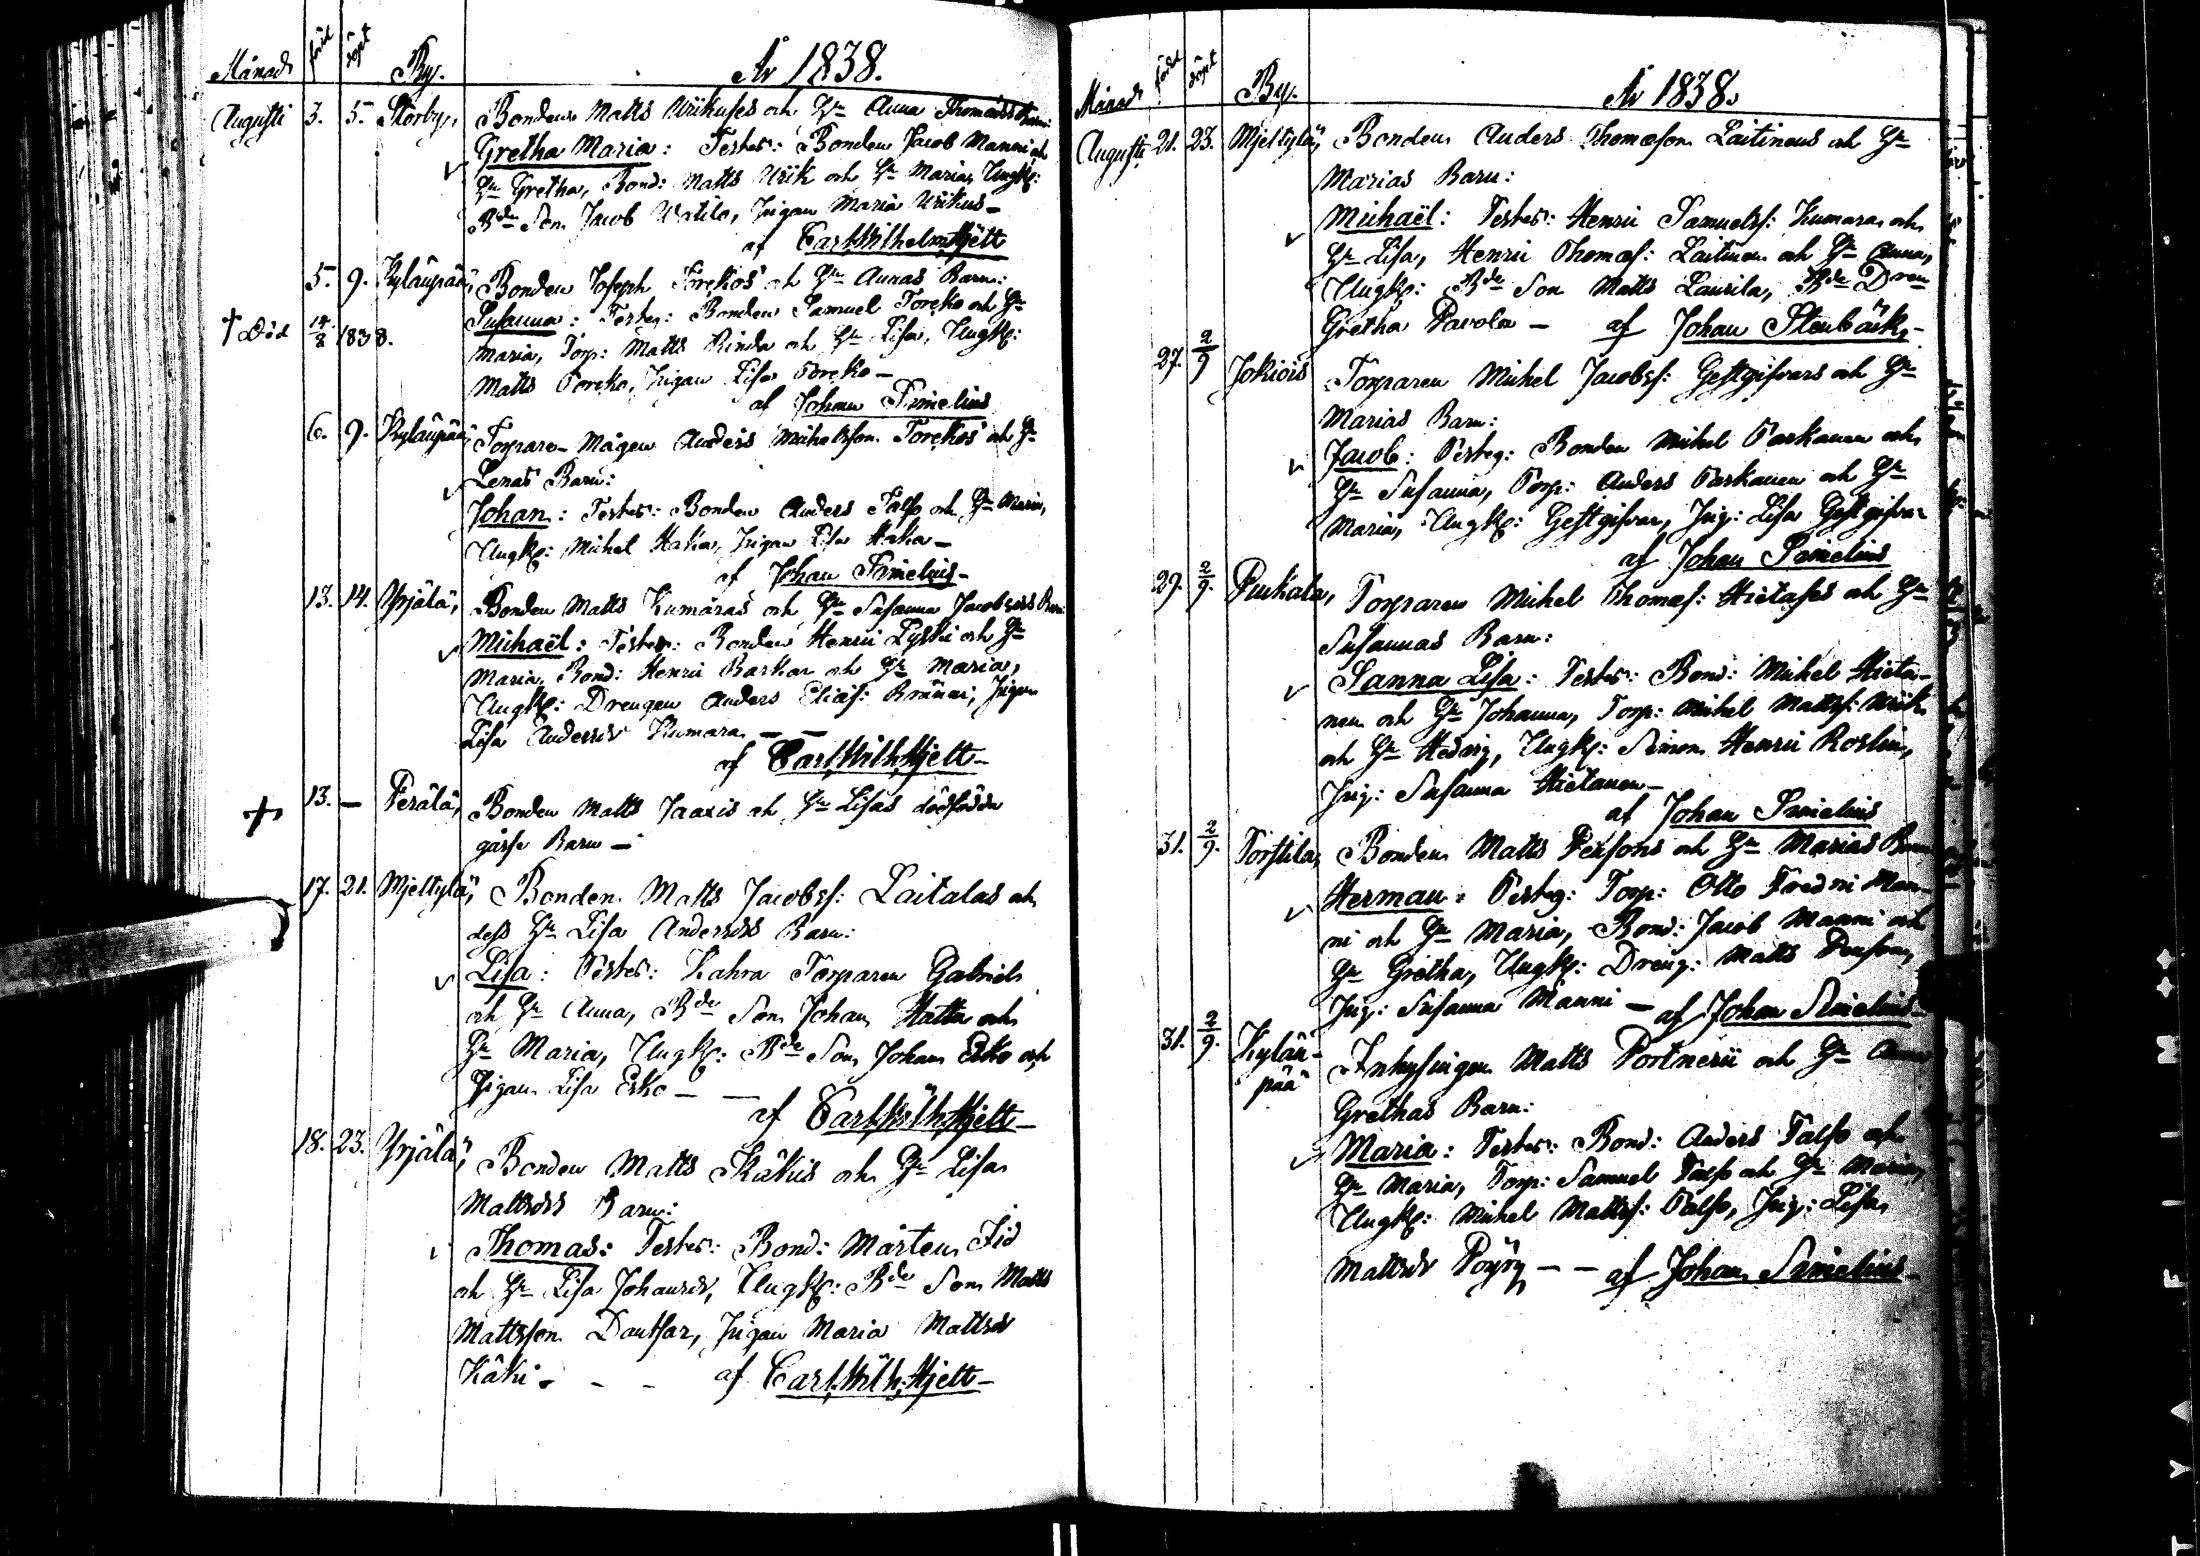 Månad född döpt By. År 1838.
Augusti 3. 5. Storby, Bonden Matts Uikuses och Hu Anna Thomasdrs Barn:
Gretha Maria: Testes: Bonden Jacob Manni och
Hu Gretha, Bond: Matts och Hu Maria, Ungk:
Bde Son Jacob, Pigan Maria
af Carl Wilhelm Hjelt
5. 9. Kyläänpää, Bonden Joseph Torekos och Hu Annas Barn:
Susanna: Testeg: Bonden Samuel Toreko och Hu
† Död 14/8 1838.
Maria, Torp: Matts Rinda och Hu Lisa, Ungk:
Matts Toreko, Pigan Lisa Toreko —
af Johan Simelius
6. 9. Kyläänpää, Torpare Mågen Anders Michelsson Torekos och Hu
Lenas Barn:
Johan: Testes: Bonden Anders Talso och Hu Maria,
Ungk: Michel Haka, Pigan Lisa Haka —
af Johan Simelius —
13. 14. Yrjälä, Bonden Matts Kumaras och Hu Susanna Jacobsdrs Barn:
Michaël: Testes: Bonden Henric Lyski och Hu
Maria, Bond: Henric Barkar och Hu Maria,
Ungk: Drengen Anders Eliass:, Pigan
Lisa Andersdr Kumara — —
af Carl Wilh. Hjelt —
† 13. — Perälä, Bonden Matts Jaaxis och Hu Lisas dödfödda
gosse Barn —
17. 21. Mjeltylä, Bonden Matts Jacobss: Laitalas och
dess Hu Lisa Andersdrs Barn:
Lisa: Testes: Torparen Gabriel
och Hu Anna, Bde Son Johan Hatta och
Hu Maria, Ungk: Bde Son Johan Esko och
Pigan Lisa Esko — —
af Carl Wilh. Hjelt —
18. 23. Yrjälä, Bonden Matts Käkis och Hu Lisa
Mattsdrs Barn:
Thomas: Testes: Bond: Mårten Fid
och Hu Lisa Johansdr, Ungk: Bde Son Matts
Mattsson Dantsar, Pigan Maria Mattsdr
Käki - - - af Carl Wilh. Hjelt —
Månad född döpt By. År 1838.
Augusti 21. 23. Mjeltylä, Bonden Anders Thomason Laitinens och Hu
Marias Barn:
Michaël: Testes: Henric Samuelss: Kumara och
Hu Lisa, Henric Thomas: Laitinen och Hu Anna,
Ungk: Bde Son Matts Laurila, Bde Dren
Gretha Pavola — af Johan Stenbäck —
27. 2/9 Jokiois Torparen Michel Jacobss: Gestgifvars och Hu
Marias Barn:
Jacob: Testeg: Bonden Michel Parkanen och
Hu Susanna, Torp: Anders Parkanen och Hu
Maria, Ungk: Gestgifvar, Pig: Lisa Gestgifvar
af Johan Simelius
29. 2/9. Purkala, Torparen Michel Thomas: Hietases och Hu
Susannas Barn:
Sanna Lisa: Testes: Bond: Michel Hieta-
nen och Hu Johanna, Torp: Michel Mattss:
och Hu Hedvig, Ungk: Simon Henric Roslin,
Pig: Susanna Hietanen —
af Johan Simelius
31. 2/9. Torstila, Bonden Matts Pensons och Hu Marias Barn
Herman: Testeg: Torp: Otto Fredric Man-
ni och Hu Maria, Bond: Jacob Manni och
Hu Gretha, Ungk: Dreng: Matts Penson,
Pig: Susanna Manni — af Johan Simelius
31. 2/9. Kylän- Inhysingen Matts Portnerii och Hu Anna
pää
Grethas Barn:
Maria: Testes: Bond: Anders Talso och
Hu Maria, Torp: Samuel Talso och Hu Maria,
Ungk: Michel Mattss: Talso, Pig: Lisa
Mattsdr Pöyry — — af Johan Simelius —